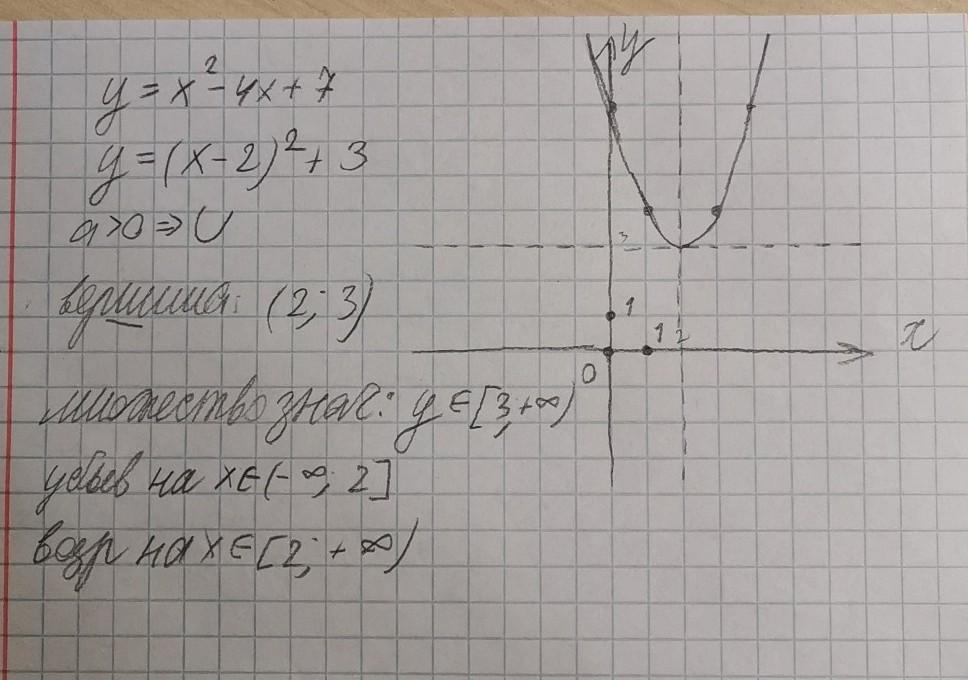 y = x² - 4x + 7
y = (x - 2)² + 3
a > 0 ⇒ ∪
вершина: (2; 3)
множество знач: y ∈ [3; +∞)
убыв на x ∈ (-∞; 2]
возр на x ∈ [2; +∞)
y
3
1
1 2
x
0